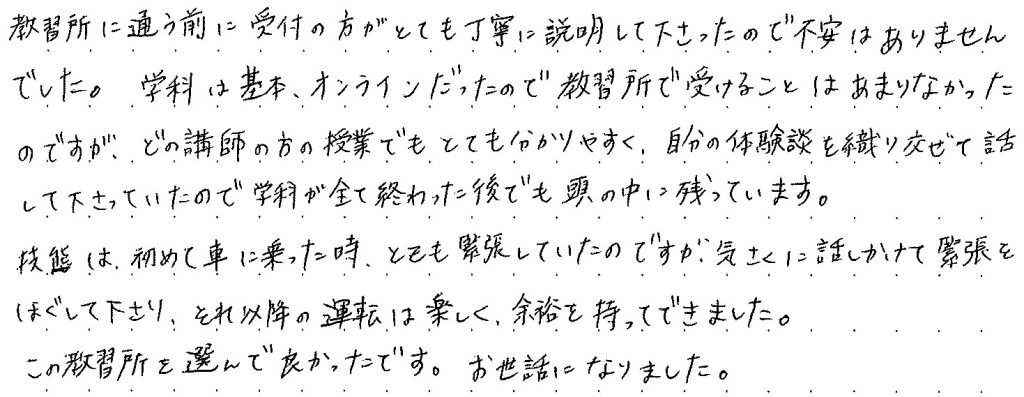 教習所に通う前に受付の方がとても丁寧に説明して下さったので不安はありません
でした。 学科は基本、オンラインだったので教習所で受けることはあまりなかった
のですが、どの講師の方の授業でもとても分かりやすく、自分の体験談を織り交ぜて話
して下さっていたので学科が全て終わった後でも頭の中に残っています。
技態は、初めて車に乗った時、とても緊張していたのですが、気さくに話しかけて緊張を
ほぐして下さり、それ以降の運転は楽しく、余裕を持ってできました。
この教習所を選んで良かったです。 お世話になりました。